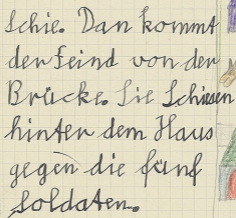 schie. Dan kommt
der Feind von der
Brücke. Sie schiesen
hinter dem Haus
gegen die fünf
soldaten.